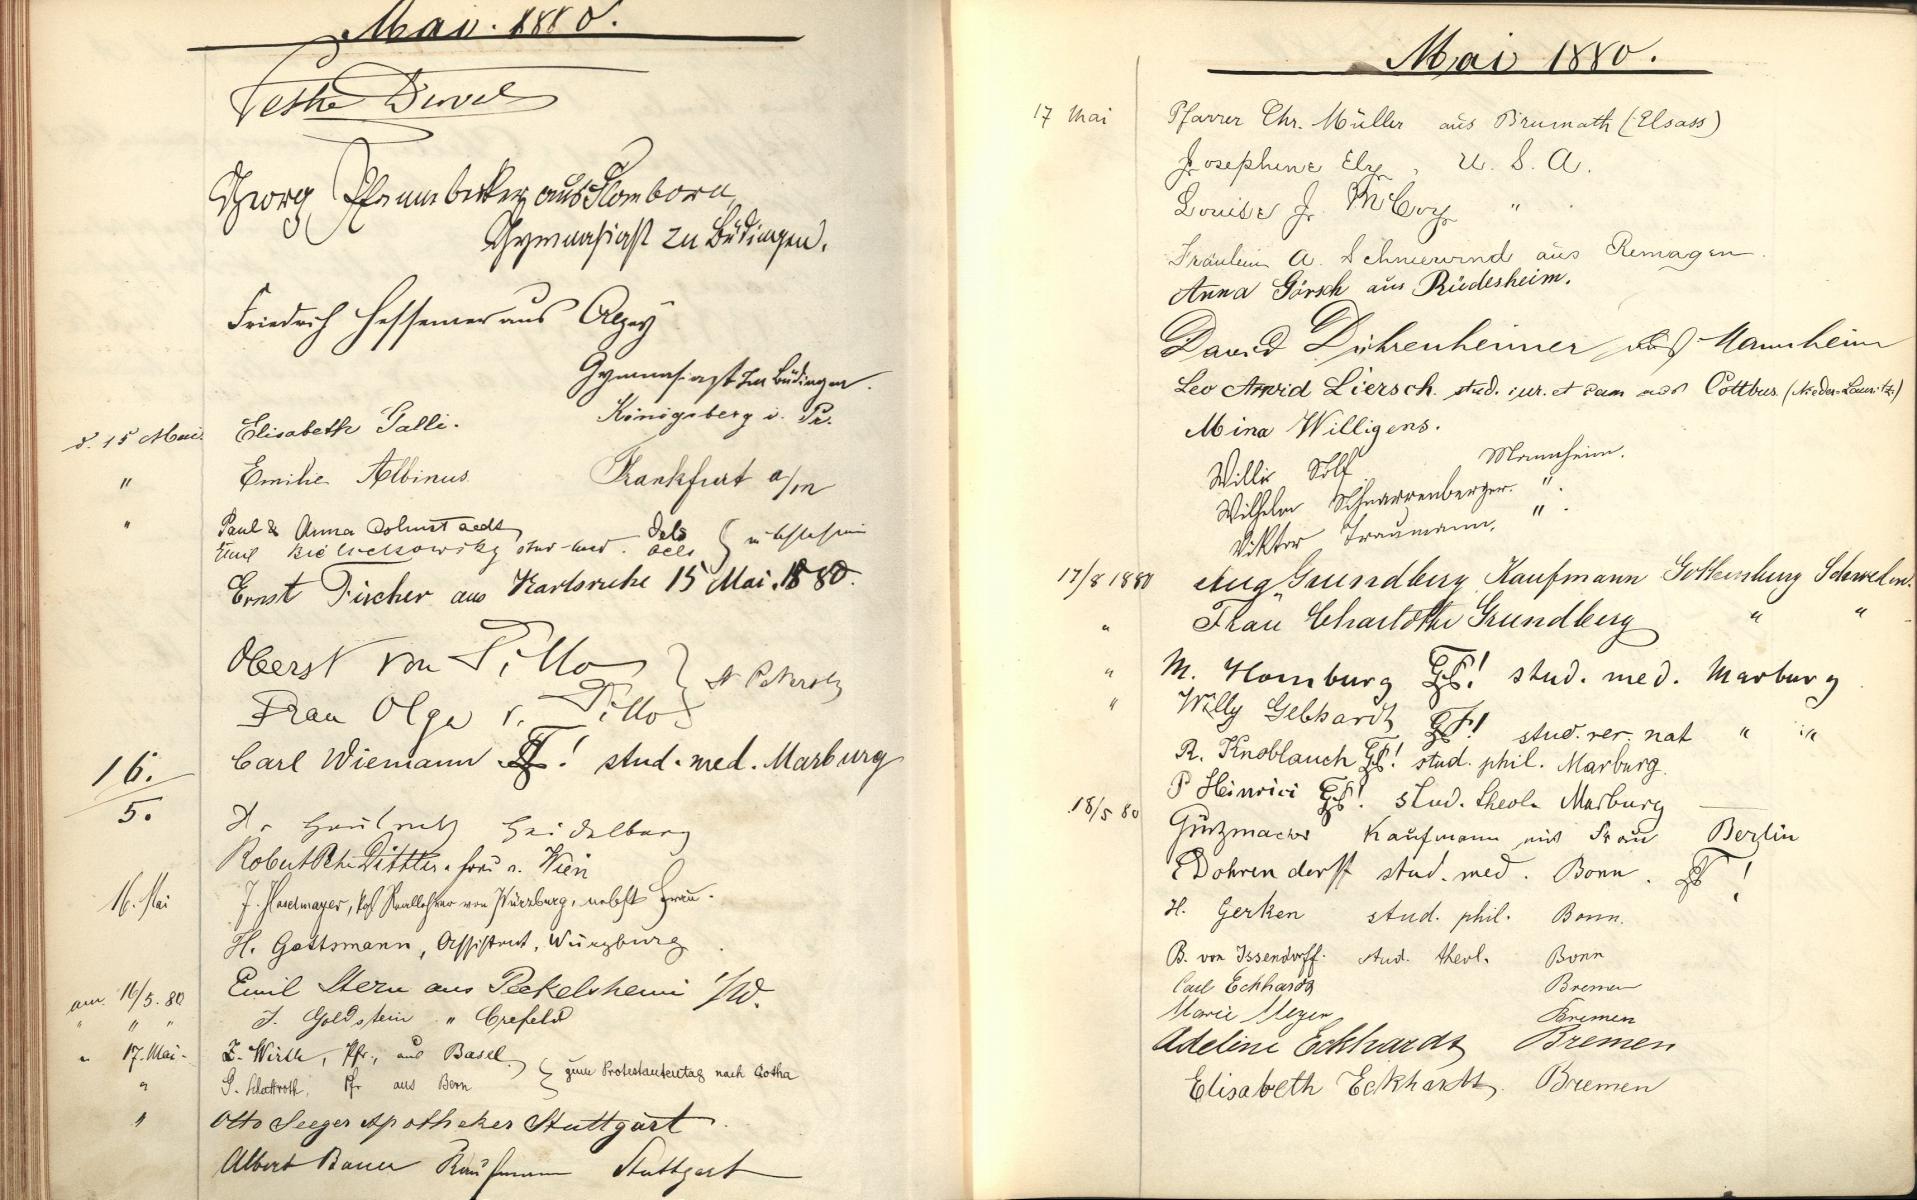 Mai. 1880.
Georg Pfannebecker aus Flomborn,
Gymnasiast zu Büdingen.
Friedrich Hessemer aus Alzey
Gymnasiast zu Büdingen.
d. 15 Mai. Elisabeth Galli. Königsberg i. Pr.
" Emilie Albinus Frankfurt a/m
" Paul & Anna Oels
Emil stud. med. Oels
Ernst Fischer aus Karlsruhe 15 Mai. 1880.
Oberst von Tillo St Petersb
Frau Olga v. Tillo
16. Carl Wiemann ! stud. med. Marburg
5. Heidelberg
Robert Frau a. Wien
16. Mai J. kgl Reallehrer von Würzburg, nebst Frau.
H. Gottsmann, Assistent, Würzburg
am 16/5. 80 Emil Stern aus Peckelsheim i/W.
" " " J. Goldstein " Crefeld
" 17. Mai. Z. Wirth, Pfr., aus Basel. zum Protestantentag nach Gotha
" G. Schattroth, Pfr aus Bern
" Otto Seeger Apotheker Stuttgart
Albert Bauer Kaufmann Stuttgart
Mai 1880.
17 Mai Pfarrer Chr. Müller aus Brumath (Elsass)
Josephine Ely, U. S. A.
Louise J. McCoy "
Fräulein A. Schneewind aus Remagen.
Anna Görsch aus Rüdesheim.
David Dührenheimer aus Mannheim
Leo Arvid Liersch. stud. iur. et cam aus Cottbus (Nieder-Lausitz)
Mina Willigens.
Willi Solf Mannheim.
Wilhelm Schnarrenberger. ".
Viktor Traumann. ".
17/8 1880 Aug Grundberg Kaufmann Gothenburg Schweden.
" Frau Charlotte Grundberg " "
" M. Homburg ! stud. med. Marburg
" Willy Gebhardt ! stud. rer. nat " "
R. Knoblauch ! stud. phil. Marburg.
P Heinrici ! stud. theol. Marburg
18/5 80 Kaufmann mit Frau Berlin
E Dohrendorff stud. med. Bonn. !
H. Gerken stud. phil. Bonn.
B. von Issendorff. stud. theol. Bonn
Carl Eckhardt Bremen
Marie Meyer Bremen
Adeline Eckhardt Bremen
Elisabeth Eckhardt. Bremen